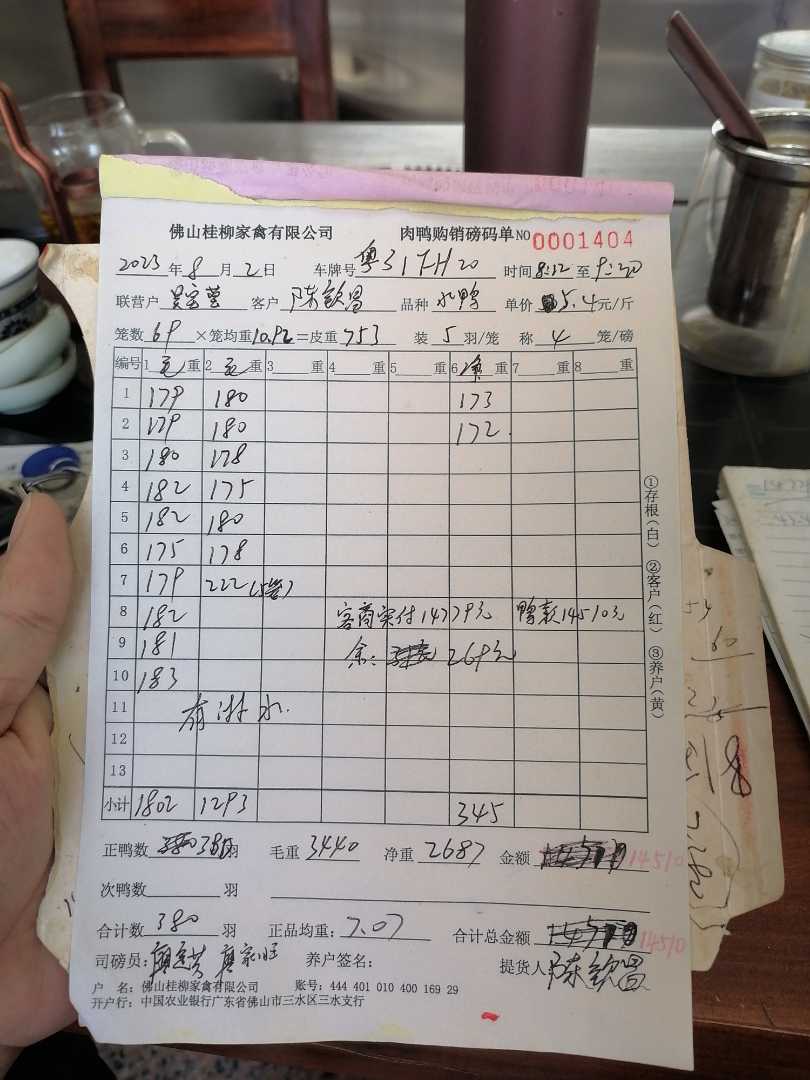 佛山桂柳家禽有限公司 肉鸭购销磅码单 NO 0001404
2023 年 8 月 2 日 车牌号 粤 时间 8:12 至 9:20
联营户 客户 陈钦昌 品种 水鸭 单价 5.4 元/斤
笼数 69 ×笼均重 10.92 =皮重 753 装 5 羽/笼 称 4 笼/磅
编号 1 毛 重 2 毛 重 3 重 4 重 5 重 6 净 重 7 重 8 重
1 179 180 173
2 179 180 172
3 180 178
4 182 175
5 182 180
6 175 178
7 179 222 (5笼)
8 182 客商实付14779元 鸭款14510元
9 181 余: 269元
10 183
11 有淋水.
12
13
小计 1802 1293 345
①存根(白) ②客户(红) ③养户(黄)
正鸭数 380 羽 毛重 3440 净重 2687 金额 14510
次鸭数 羽
合计数 380 羽 正品均重: 7.07 合计总金额 14510
司磅员: 养户签名: 提货人: 陈钦昌
户 名: 佛山桂柳家禽有限公司 账号: 444 401 010 400 169 29
开户行: 中国农业银行广东省佛山市三水区三水支行